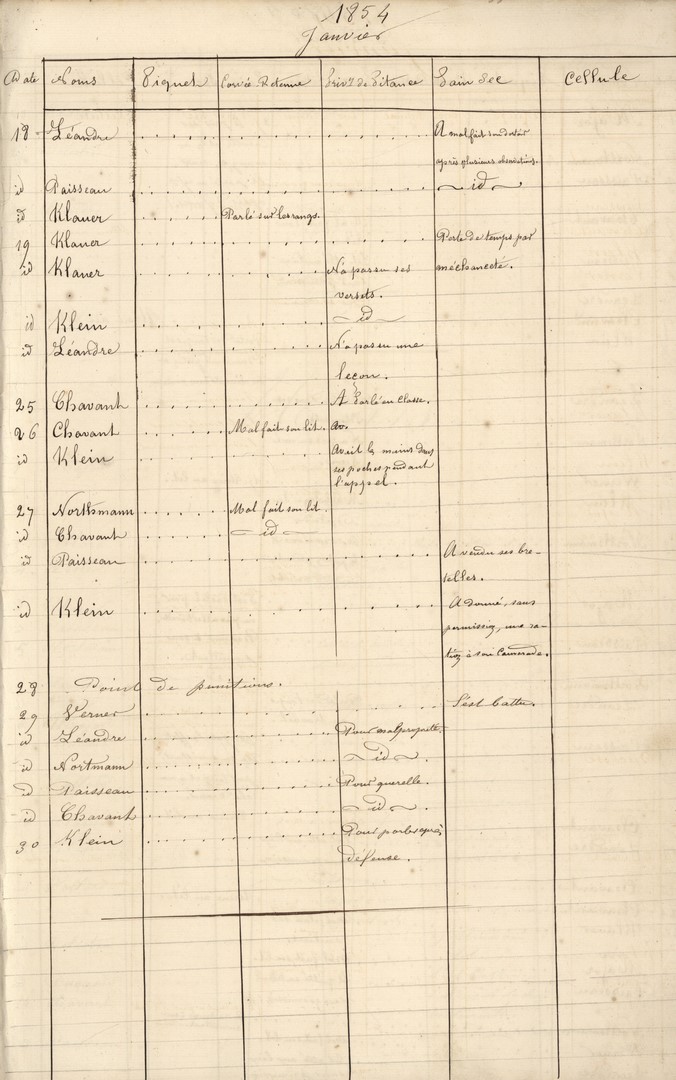 1854
Janvier
Date Noms Piquet Corvée-Retenue Priv.on de Pitance Pain Sec Cellule
18 Léandre A mal fait son devoir
après plusieurs observations.
id Paisseau id
id Klauer Parlé sur les rangs.
19 Klauer Perte de temps par
id Klauer N'a pas su ses méchanceté.
versets.
id Klein id
id Léandre N'a pas su une
leçon.
25 Chavant A parlé en classe.
26 Chavant Mal fait son lit.
id Klein Avait les mains dans
ses poches pendant
l'appel.
27 Northmann Mal fait son lit.
id Chavant id
id Paisseau A vendu ses bre-
telles.
id Klein A donné, sans
permission, une ra-
tion à son Camarade.
28 Point de punitions.
29 Verner S'est battu.
id Léandre Pour malpropreté.
id Nortmann id
id Paisseau Pour querelle.
id Chavant id
30 Klein Pour parler après
défense.